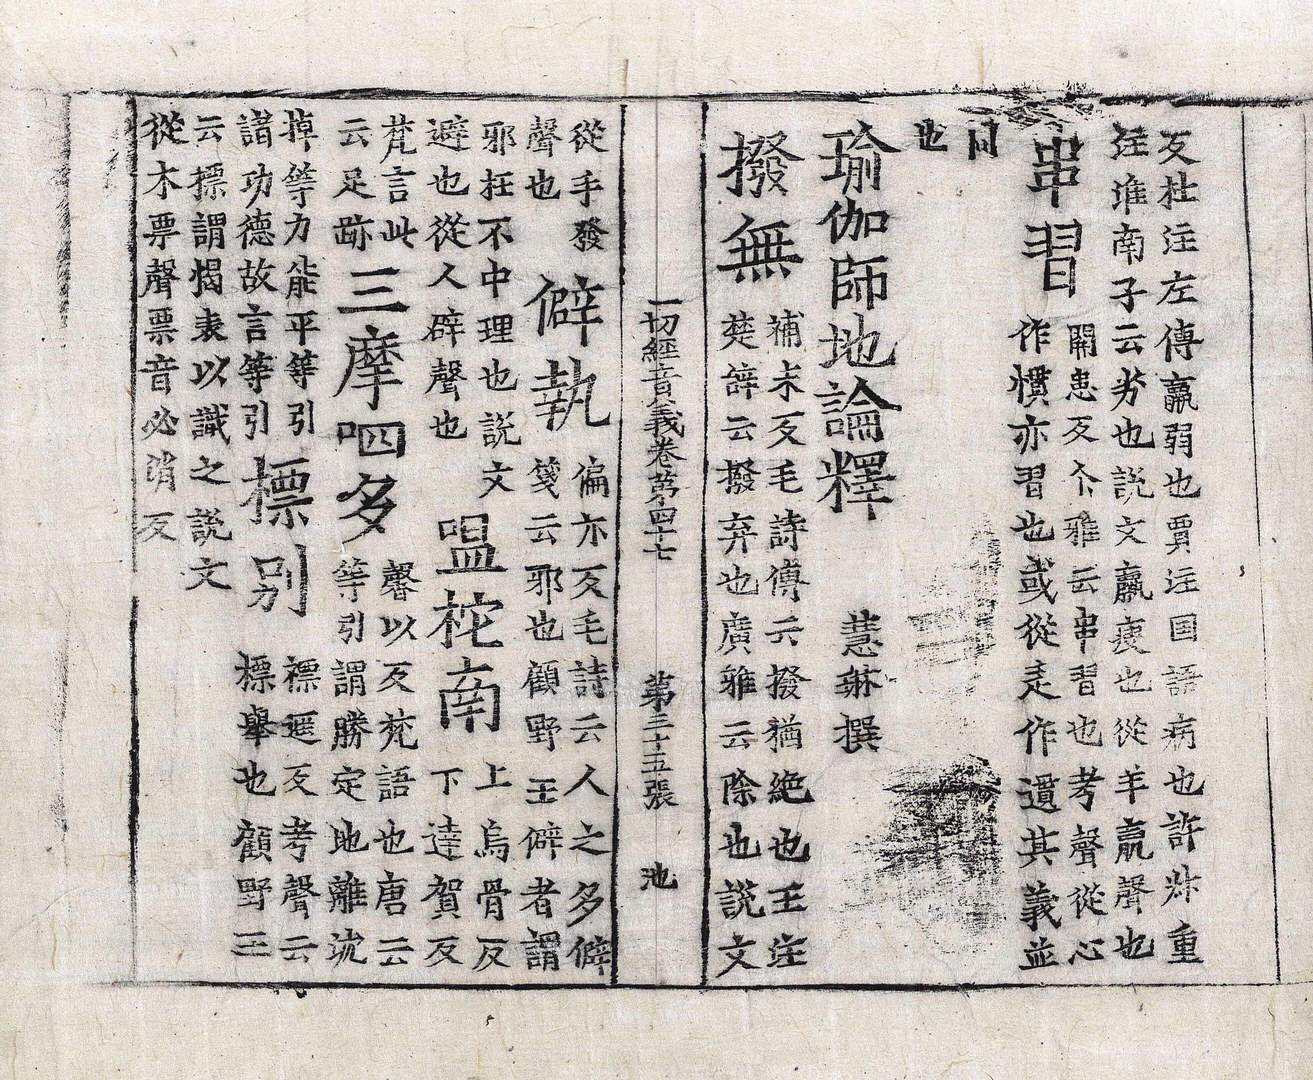 反杜注左傳羸弱也賈注国語病也許叔重
注淮南子云劣也說文羸瘦也從羊羸聲也
串習
關患反尒雅云串習也考聲從心
作慣亦習也或從辵作遺其義並
同
也
瑜伽師地論釋 慧琳撰
撥無
補末反毛詩傅云撥猶絶也王注
楚辞云撥弃也廣雅云除也說文
一切經音義卷第四十七 第三十五張 池
從手發
聲也
僻執
偏亦反毛詩云人之多僻
箋云邪也顧野王僻者謂
邪枉不中理也説文
避也從人辟聲也
嗢柁南
上烏骨反
下達賀反
梵言此
云足跡
三摩呬多
馨以反梵語也唐云
等引謂勝定地離沈
掉等力能平等引
諸功德故言等引
標别
褾遥反考聲云
標舉也顧野王
云標謂楬表以識之說文
從木票聲票音必消反